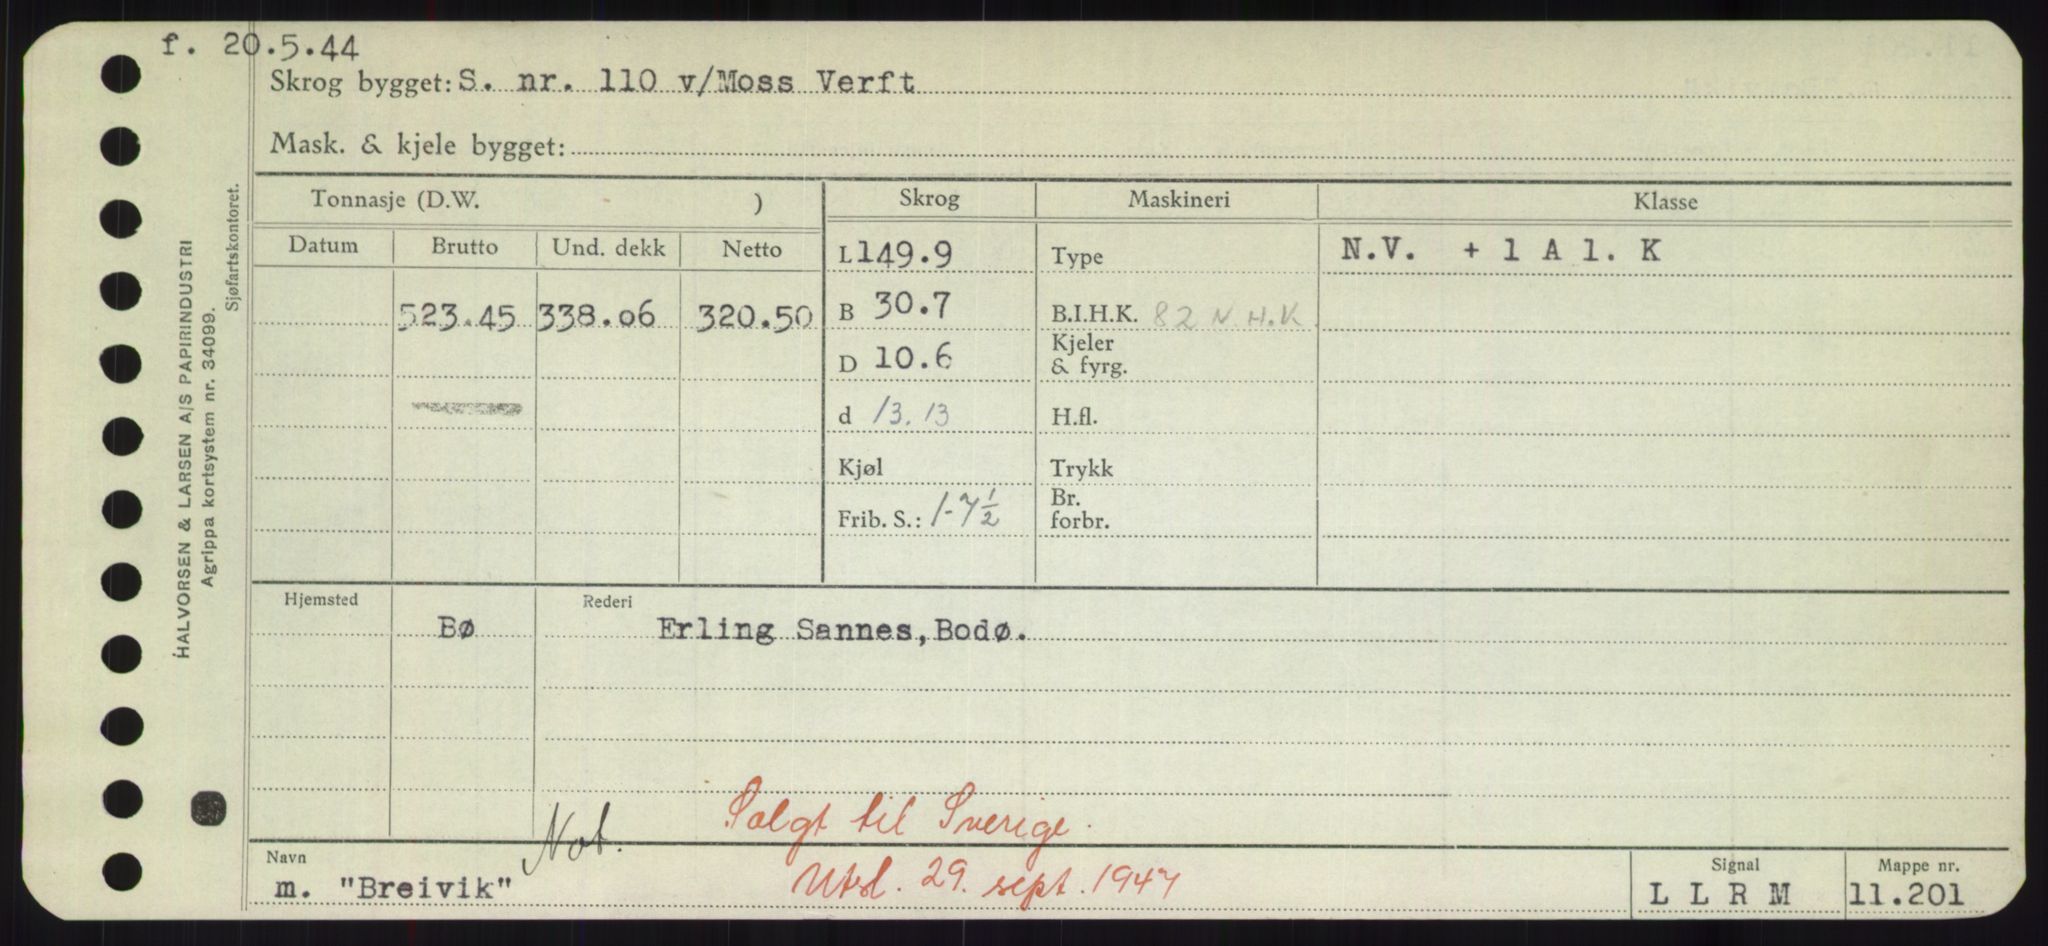 f. 20.5.44
Skrog bygget: S. nr. 110 v/Moss Verft
Mask. & kjele bygget:
Tonnasje (D.W. ) Skrog Maskineri Klasse
Datum Brutto Und. dekk Netto L 149.9 Type N.V. + 1 A 1. K
523.45 338.06 320.50 B 30.7 B.I.H.K. 82 N.H.K.
D 10.6 Kjeler & fyrg.
d 13.13 H.fl.
Kjøl Trykk
Frib. S.: 1-7½ Br. forbr.
Hjemsted Rederi
Bø Erling Sannes, Bodø.
Solgt til Sverige.
Not.
Navn Signal Mappe nr.
m. "Breivik" Utsl. 29. sept. 1947 L L R M 11.201
HALVORSEN & LARSEN A/S PAPIRINDUSTRI
Agrippa kortsystem nr. 34099.
Sjøfartskontoret.